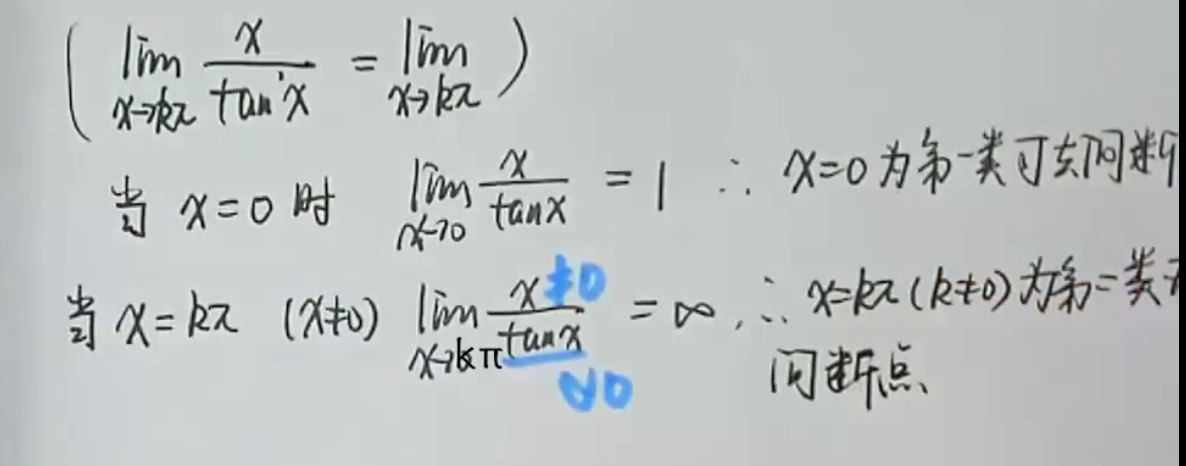 ( lim x→kπ x/tan x = lim x→kπ )
当 x=0 时 lim x→0 x/tanx = 1 ∴ x=0 为第一类可去间断
当 x=kπ (x≠0) lim x→kπ x/tanx = ∞, ∴ x=kπ (k≠0) 为第二类
≠0
→0
间断点